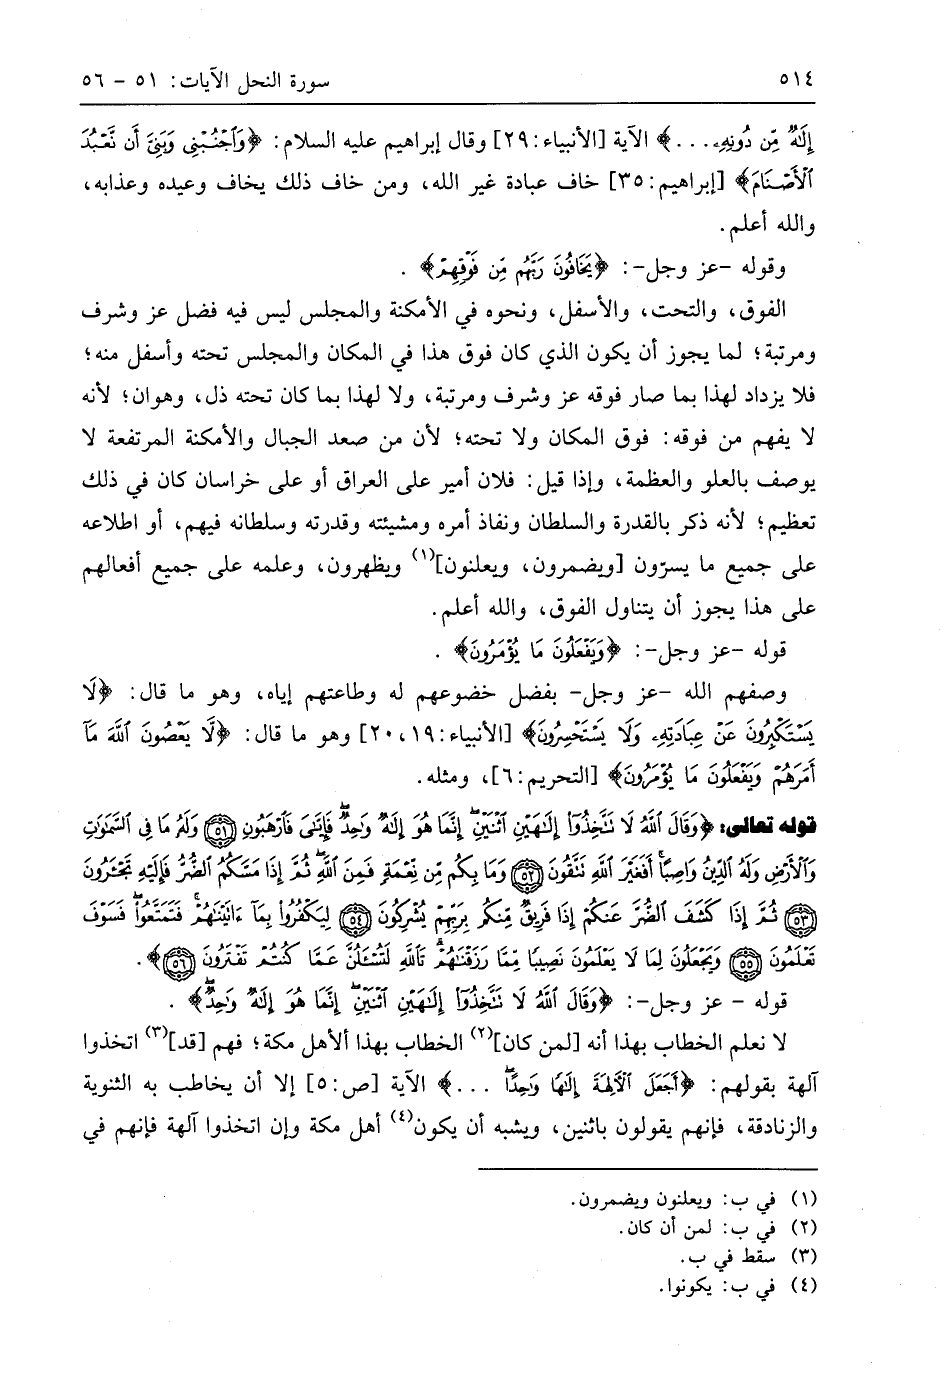 ٥١٤ سورة النحل الآيات: ٥١ - ٥٦
إِلَٰهٌ مِّن دُونِهِۦ...﴾ الآية [الأنبياء: ٢٩] وقال إبراهيم عليه السلام: ﴿وَٱجْنُبْنِى وَبَنِىَّ أَن نَّعْبُدَ
ٱلْأَصْنَامَ﴾ [إبراهيم: ٣٥] خاف عبادة غير الله، ومن خاف ذلك يخاف وعيده وعذابه،
والله أعلم.
وقوله -عز وجل-: ﴿يَخَافُونَ رَبَّهُم مِّن فَوْقِهِمْ﴾ .
الفوق، والتحت، والأسفل، ونحوه في الأمكنة والمجلس ليس فيه فضل عز وشرف
ومرتبة؛ لما يجوز أن يكون الذي كان فوق هذا في المكان والمجلس تحته وأسفل منه؛
فلا يزداد لهذا بما صار فوقه عز وشرف ومرتبة، ولا لهذا بما كان تحته ذل، وهوان؛ لأنه
لا يفهم من فوقه: فوق المكان ولا تحته؛ لأن من صعد الجبال والأمكنة المرتفعة لا
يوصف بالعلو والعظمة، وإذا قيل: فلان أمير على العراق أو على خراسان كان في ذلك
تعظيم؛ لأنه ذكر بالقدرة والسلطان ونفاذ أمره ومشيئته وقدرته وسلطانه فيهم، أو اطلاعه
على جميع ما يسرّون [ويضمرون، ويعلنون](١) ويظهرون، وعلمه على جميع أفعالهم
على هذا يجوز أن يتناول الفوق، والله أعلم.
قوله -عز وجل-: ﴿وَيَفْعَلُونَ مَا يُؤْمَرُونَ﴾ .
وصفهم الله -عز وجل- بفضل خضوعهم له وطاعتهم إياه، وهو ما قال: ﴿لَا
يَسْتَكْبِرُونَ عَنْ عِبَادَتِهِۦ وَلَا يَسْتَحْسِرُونَ﴾ [الأنبياء: ١٩، ٢٠] وهو ما قال: ﴿لَّا يَعْصُونَ ٱللَّهَ مَآ
أَمَرَهُمْ وَيَفْعَلُونَ مَا يُؤْمَرُونَ﴾ [التحريم: ٦]، ومثله.
قوله تعالى: ﴿وَقَالَ ٱللَّهُ لَا تَتَّخِذُوٓا۟ إِلَٰهَيْنِ ٱثْنَيْنِ ۖ إِنَّمَا هُوَ إِلَٰهٌ وَٰحِدٌ ۖ فَإِيَّٰىَ فَٱرْهَبُونِ ٥١ وَلَهُۥ مَا فِى ٱلسَّمَٰوَٰتِ
وَٱلْأَرْضِ وَلَهُ ٱلدِّينُ وَاصِبًا ۚ أَفَغَيْرَ ٱللَّهِ تَتَّقُونَ ٥٢ وَمَا بِكُم مِّن نِّعْمَةٍ فَمِنَ ٱللَّهِ ۖ ثُمَّ إِذَا مَسَّكُمُ ٱلضُّرُّ فَإِلَيْهِ تَجْـَٔرُونَ
٥٣ ثُمَّ إِذَا كَشَفَ ٱلضُّرَّ عَنكُمْ إِذَا فَرِيقٌ مِّنكُم بِرَبِّهِمْ يُشْرِكُونَ ٥٤ لِيَكْفُرُوا۟ بِمَآ ءَاتَيْنَٰهُمْ ۚ فَتَمَتَّعُوا۟ ۖ فَسَوْفَ
تَعْلَمُونَ ٥٥ وَيَجْعَلُونَ لِمَا لَا يَعْلَمُونَ نَصِيبًا مِّمَّا رَزَقْنَٰهُمْ ۗ تَٱللَّهِ لَتُسْـَٔلُنَّ عَمَّا كُنتُمْ تَفْتَرُونَ ٥٦﴾.
قوله - عز وجل-: ﴿وَقَالَ ٱللَّهُ لَا تَتَّخِذُوٓا۟ إِلَٰهَيْنِ ٱثْنَيْنِ ۖ إِنَّمَا هُوَ إِلَٰهٌ وَٰحِدٌ ۖ﴾ .
لا نعلم الخطاب بهذا أنه [لمن كان](٢) الخطاب بهذا ألأهل مكة؛ فهم [قد](٣) اتخذوا
آلهة بقولهم: ﴿أَجَعَلَ ٱلْءَالِهَةَ إِلَٰهًا وَٰحِدًا ۖ ...﴾ الآية [ص: ٥] إلا أن يخاطب به الثنوية
والزنادقة، فإنهم يقولون باثنين، ويشبه أن يكون(٤) أهل مكة وإن اتخذوا آلهة فإنهم في
(١) في ب: ويعلنون ويضمرون.
(٢) في ب: لمن أن كان.
(٣) سقط في ب.
(٤) في ب: يكونوا.